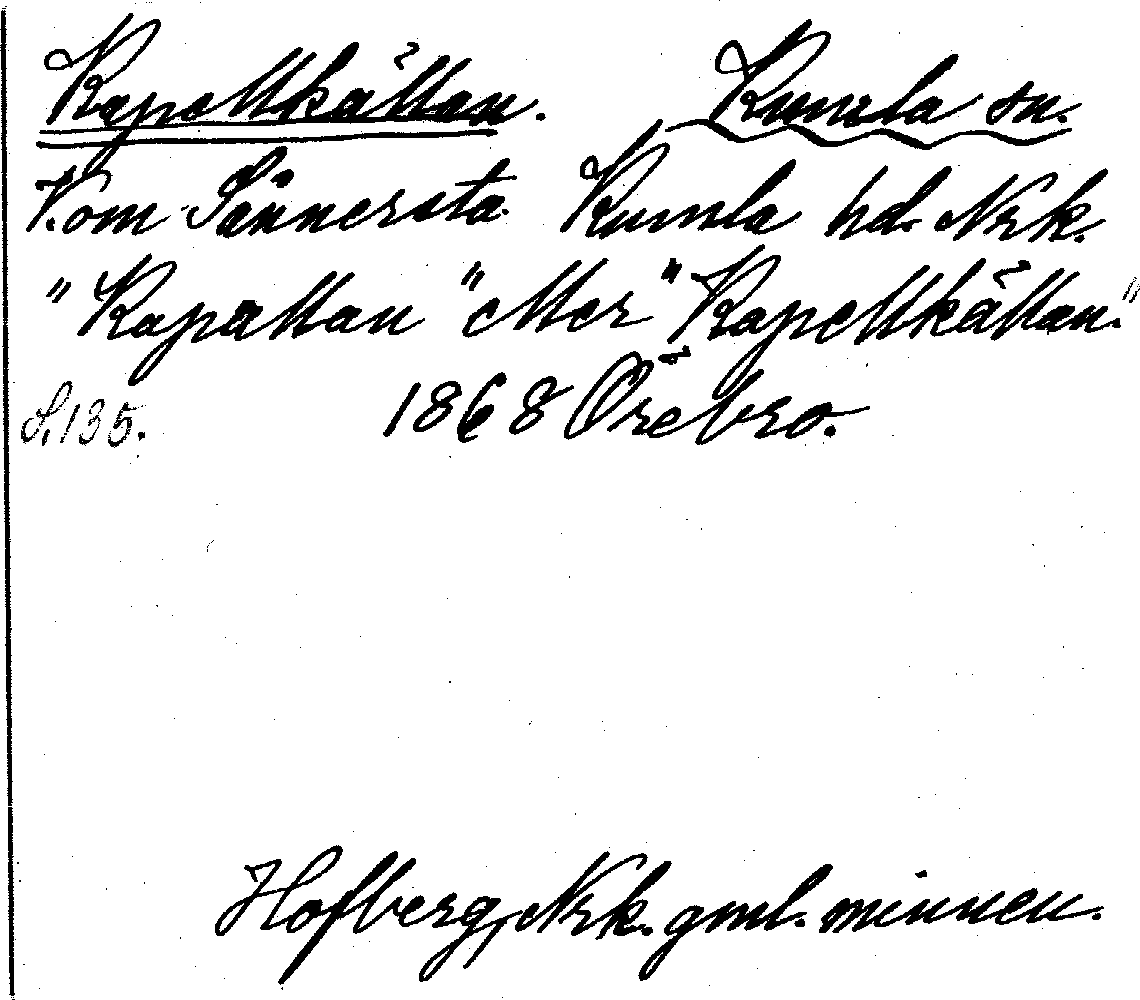 Kapellkällan. Kumla sn.
V. om Sånnersta. Kumla hd. Nrk.
"Kapallan" eller "Kapellkällan."
S. 135. 1868 Örebro.
Hofberg, Nrk. gml. minnen.